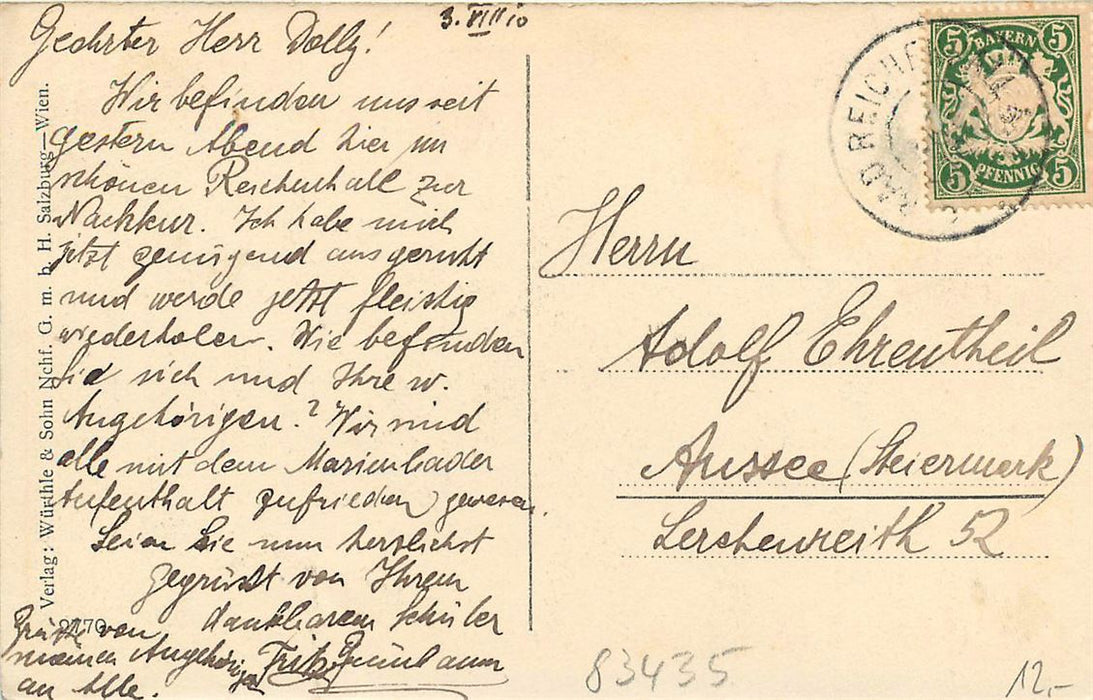 3. VIII 10
Geehrter Herr Dolly!
Wir befinden uns seit
gestern Abend hier im
schönen Reichenhall zur
Nachkur. Ich habe mich
jetzt genügend ausgeruht
und werde jetzt fleistig
wiederholen. Wie befinden
Sie sich und Ihre w.
Angehörigen? Wir sind
alle mit dem Marienbader
Aufenthalt zufrieden gewesen.
Seien Sie nun herzlichst
gegrüsst von Ihrem
dankbaren Schüler
Fritz Grünbaum
Grüsse von
meinen Angehörigen
an Alle.
Verlag: Würthle & Sohn Nchf. G. m. b. H. Salzburg—Wien.
BAD REICHEN
5 BAYERN 5
5 PFENNIG 5
Herrn
Adolf Ehrentheil
Aussee (Steiermark)
Lerchenreith 52
83435
12,-